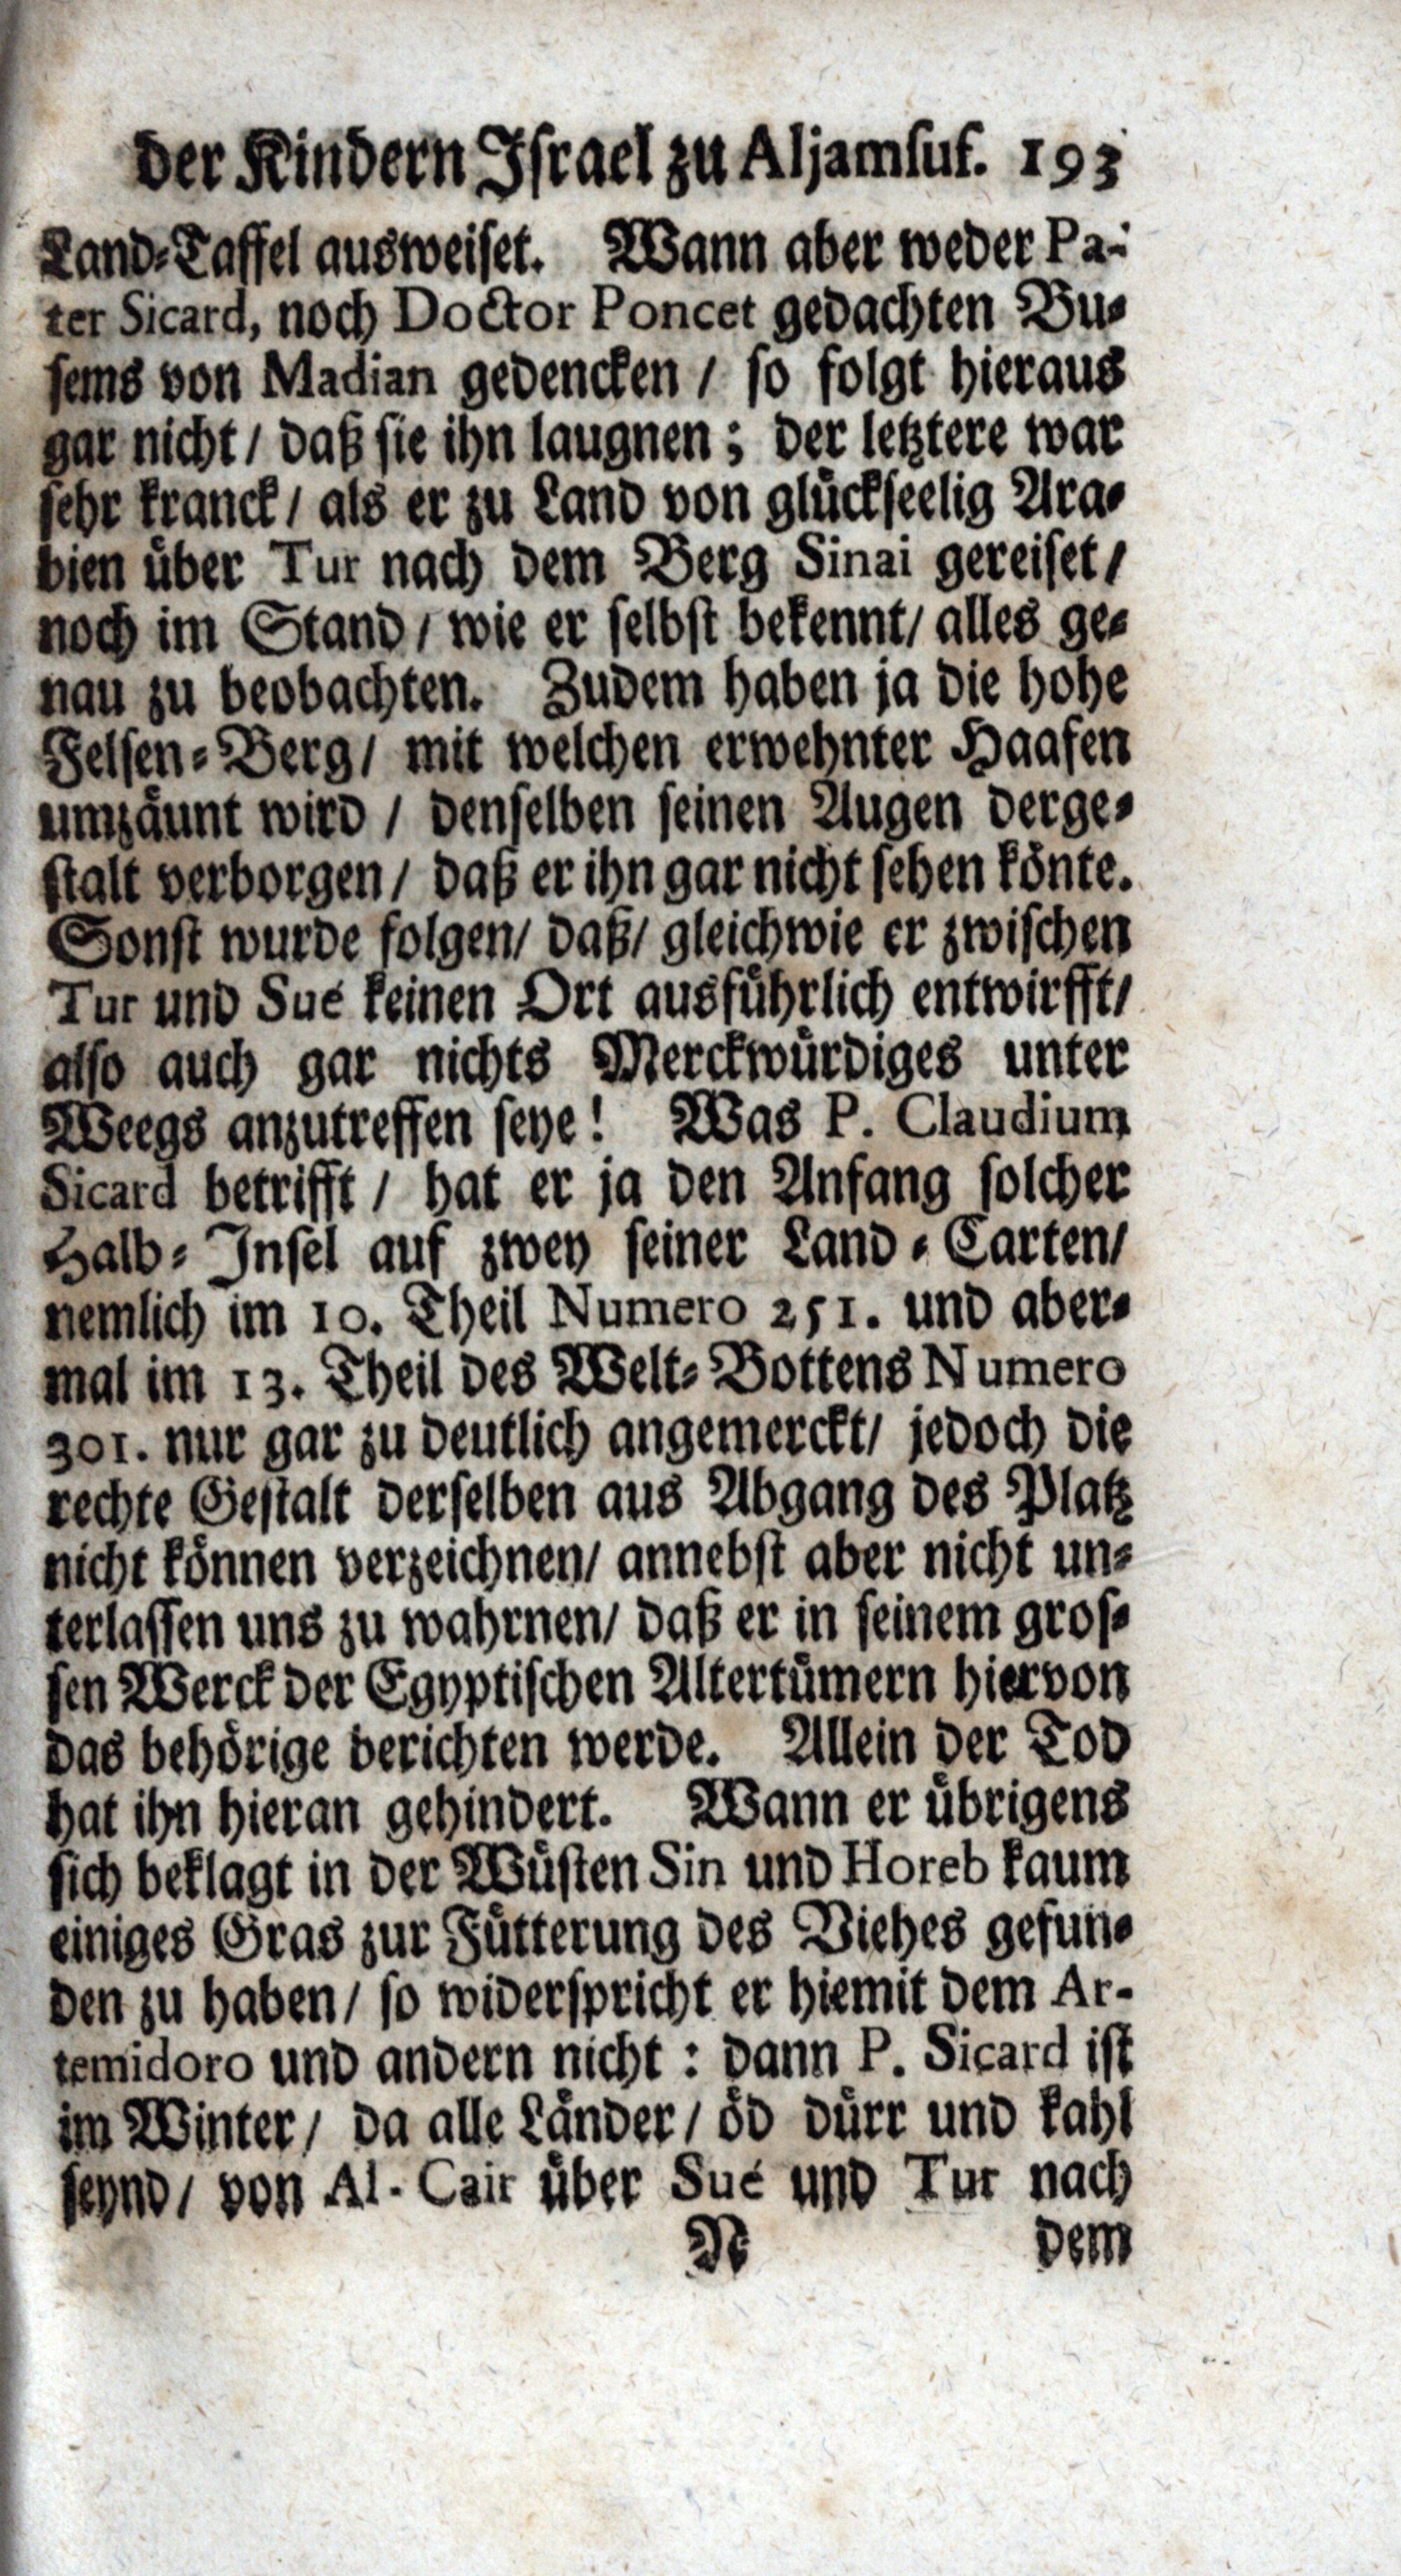 der Kindern Israel zu Aljamsuf. 193
Land-Taffel ausweiset. Wann aber weder Pa-
ter Sicard, noch Doctor Poncet gedachten Bu-
sems von Madian gedencken / so folgt hieraus
gar nicht / daß sie ihn laugnen; der letztere war
sehr kranck / als er zu Land von glückseelig Ara-
bien über Tur nach dem Berg Sinai gereiset /
noch im Stand / wie er selbst bekennt / alles ge-
nau zu beobachten. Zudem haben ja die hohe
Felsen-Berg / mit welchen erwehnter Haafen
umzäunt wird / denselben seinen Augen derge-
stalt verborgen / daß er ihn gar nicht sehen könte.
Sonst wurde folgen / daß / gleichwie er zwischen
Tur und Sué keinen Ort ausführlich entwirfft /
also auch gar nichts Merckwürdiges unter
Weegs anzutreffen seye! Was P. Claudium
Sicard betrifft / hat er ja den Anfang solcher
Halb-Insel auf zwey seiner Land-Carten /
nemlich im 10. Theil Numero 251. und aber-
mal im 13. Theil des Welt-Bottens Numero
301. nur gar zu deutlich angemerckt / jedoch die
rechte Gestalt derselben aus Abgang des Platz
nicht können verzeichnen / annebst aber nicht un-
terlassen uns zu wahrnen / daß er in seinem gros-
sen Werck der Egyptischen Altertümern hiervon
das behörige berichten werde. Allein der Tod
hat ihn hieran gehindert. Wann er übrigens
sich beklagt in der Wüsten Sin und Horeb kaum
einiges Gras zur Fütterung des Viehes gefun-
den zu haben / so widerspricht er hiemit dem Ar-
temidoro und andern nicht: dann P. Sicard ist
im Winter / da alle Länder / öd dürr und kahl
seynd / von Al-Cair über Sué und Tur nach
N dem